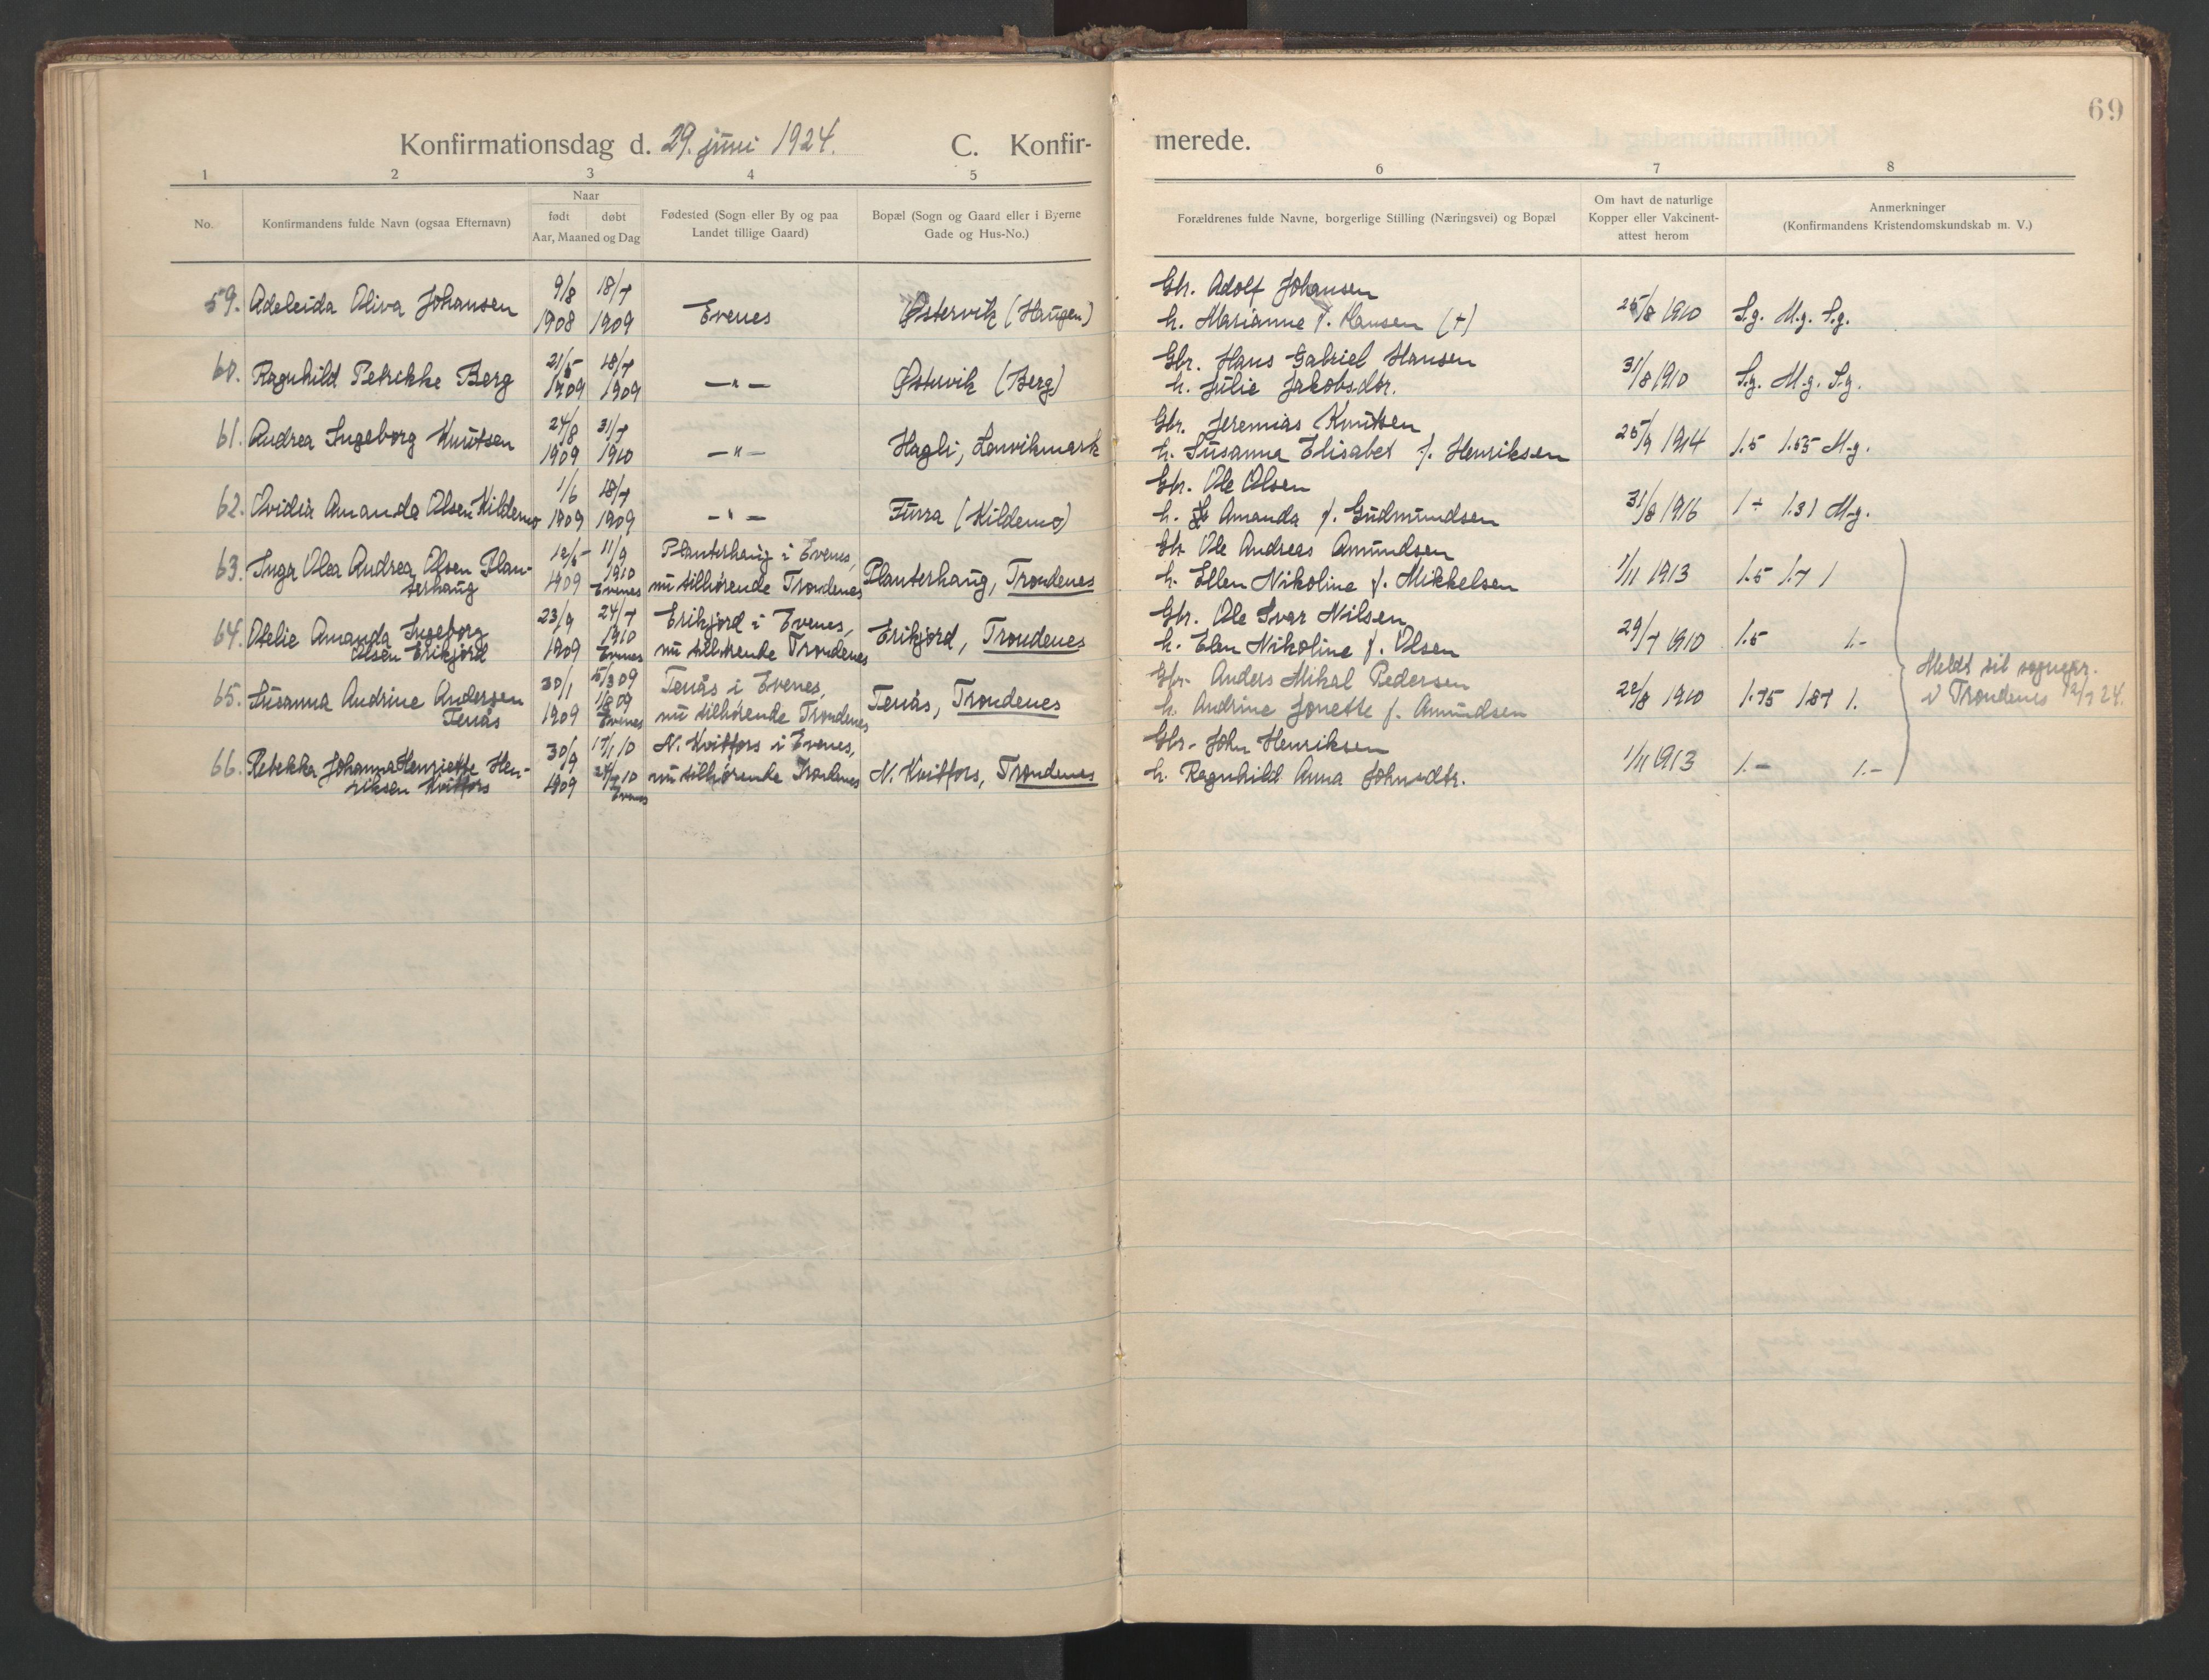 69
Konfirmationsdag d. 29. juni 1924. C. Konfir- merede.
1 2 3 4 5 6 7 8
No. Konfirmandens fulde Navn (ogsaa Efternavn) Naar født døbt Aar, Maaned og Dag Fødested (Sogn eller By og paa Landet tillige Gaard) Bopæl (Sogn og Gaard eller i Byerne Gade og Hus-No.) Forældrenes fulde Navne, borgerlige Stilling (Næringsvei) og Bopæl Om havt de naturlige Kopper eller Vakcinent- attest herom Anmerkninger (Konfirmandens Kristendomskundskab m. V.)
59. Adeleida Oliva Johansen 9/8 1908 18/7 1909 Evenes Østervik (Haugen) Gbr. Adolf Johansen
h. Marianne f. Hansen (+) 25/8 1910 S.g. M.g. S.g.
60. Ragnhild Petrikke Berg 21/5 1909 18/7 1909 —"— Østervik (Berg) Gbr. Hans Gabriel Hansen
h. Julie Jakobsdtr. 31/8 1910 S.g. M.g. S.g.
61. Andrea Ingeborg Knutsen 24/8 1909 31/7 1910 —"— Hagli, Lenvikmark Gbr. Jeremias Knutsen
h. Susanna Elisabet f. Henriksen 25/9 1914 1.5 1.55 M.g.
62. Ovidia Amanda Olsen Kildemo 1/6 1909 18/7 1909 —"— Furra (Kildemo) Gbr. Ole Olsen
h. Amanda f. Gudmundsen 31/8 1916 1 ÷ 1.31 M.g.
63. Inga Olea Andrea Olsen Plan-
terhaug 12/5 1909 11/9 1910 Evenes Planterhaug i Evenes,
nu tilhørende Trondenes Planterhaug, Trondenes Gbr. Ole Andreas Amundsen
h. Ellen Nikoline f. Mikkelsen 1/11 1913 1.5 1.7 1
64. Otelie Amanda Ingeborg
Olsen Erikjord 23/9 1909 24/7 1910 Evenes Erikjord i Evenes,
nu tilhørende Trondenes Erikjord, Trondenes Gbr. Ole Ivar Nilsen
h. Elen Nikoline f. Olsen 29/7 1910 1.5 1.-
65. Susanna Andrine Andersen
Tenås 30/1 1909 5/3 09 1/8 09 Evenes Tenås i Evenes,
nu tilhørende Trondenes Tenås, Trondenes Gbr. Anders Mikal Pedersen
h. Andrine Jonette f. Amundsen 22/8 1910 1.75 1.87 1.
Meldt til sognepr.
i Trondenes 12/7 24.
66. Rebekka Johanna Henriette Hen-
riksen Kvitfors 30/9 1909 17/1 10 Evenes N. Kvitfors i Evenes,
nu tilhørende Trondenes N. Kvitfors, Trondenes Gbr. John Henriksen
h. Ragnhild Anna Johnsdtr. 1/11 1913 1.- 1.-